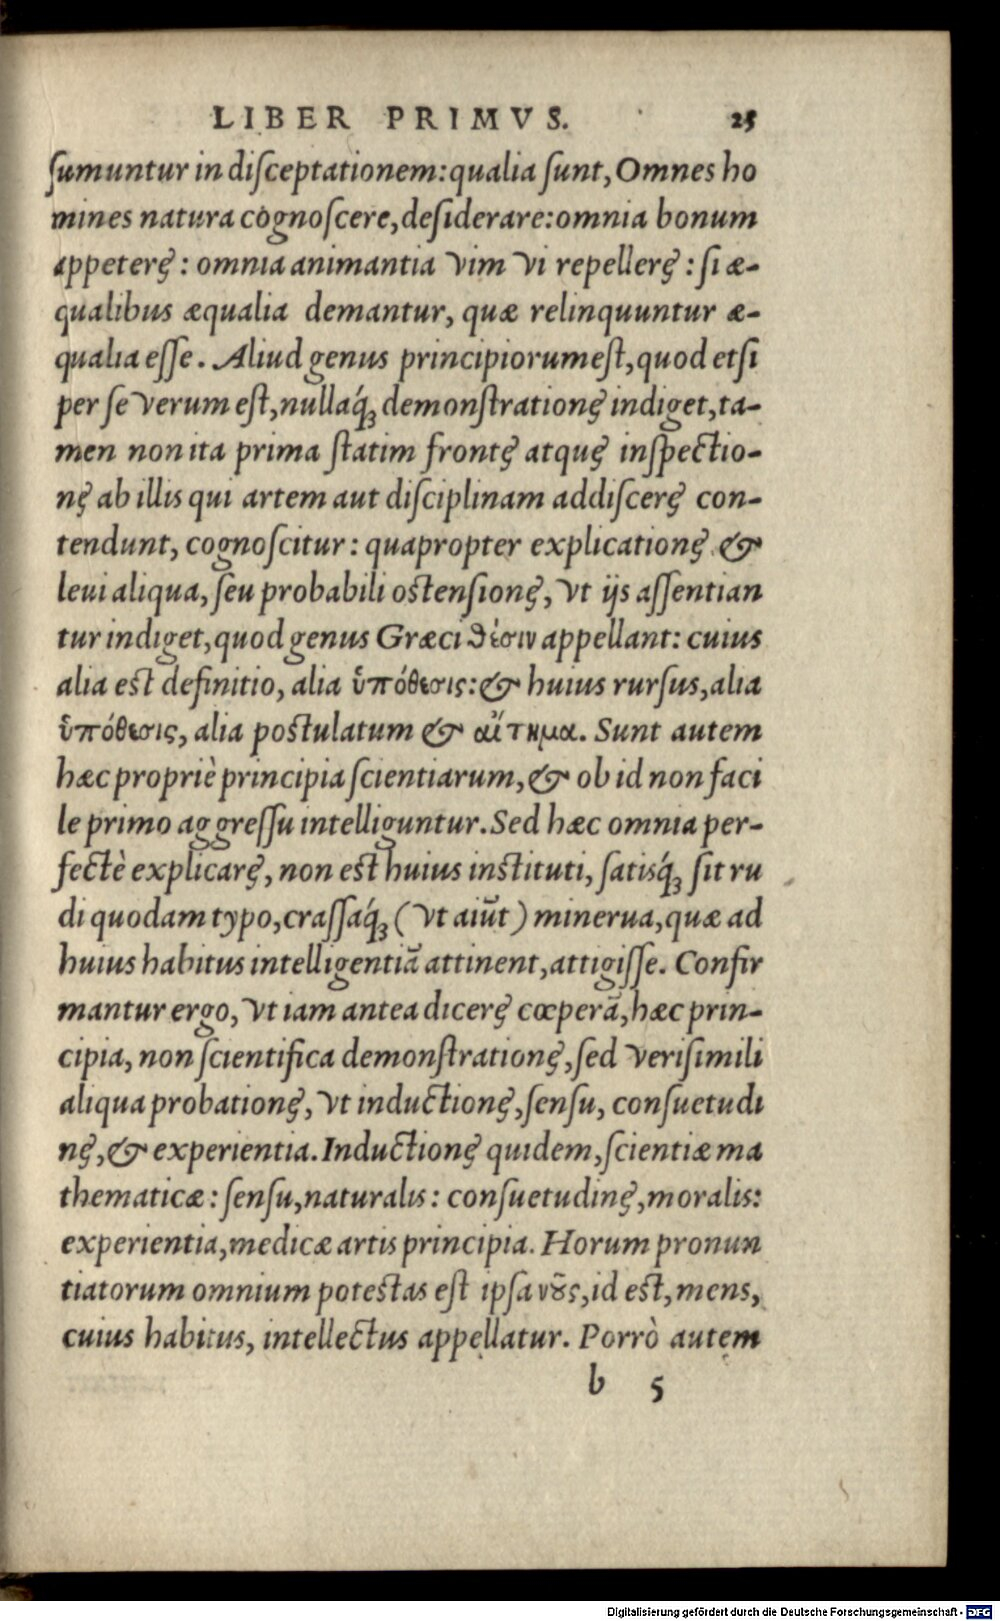 LIBER PRIMVS. 25
ſumuntur in diſceptationem: qualia ſunt, Omnes ho
mines natura cognoſcere, deſiderare: omnia bonum
appetere: omnia animantia vim vi repellere: ſi æ-
qualibus æqualia demantur, quæ relinquuntur æ-
qualia eſſe. Aliud genus principiorum eſt, quod etſi
per ſe verum eſt, nullaq́ꝫ demonſtratione indiget, ta-
men non ita prima ſtatim fronte atque inſpectio-
ne ab illis qui artem aut diſciplinam addiſcere con-
tendunt, cognoſcitur: quapropter explicatione &
leui aliqua, ſeu probabili oſtenſione, vt ijs aſſentian
tur indiget, quod genus Græci θέσιν appellant: cuius
alia eſt definitio, alia ὑπόθεσις: & huius rurſus, alia
ὑπόθεσις, alia poſtulatum & αἴτημα. Sunt autem
hæc propriè principia ſcientiarum, & ob id non faci
le primo aggreſſu intelliguntur. Sed hæc omnia per-
fectè explicare, non eſt huius inſtituti, ſatisq́ꝫ ſit ru
di quodam typo, craſſaq́ꝫ (vt aiũt) minerua, quæ ad
huius habitus intelligentiã attinent, attigiſſe. Confir
mantur ergo, vt iam antea dicere cœperã, hæc prin-
cipia, non ſcientifica demonſtratione, ſed veriſimili
aliqua probatione, vt inductione, ſenſu, conſuetudi
ne, & experientia. Inductione quidem, ſcientiæ ma
thematicæ: ſenſu, naturalis: conſuetudine, moralis:
experientia, medicæ artis principia. Horum pronun
tiatorum omnium poteſtas eſt ipſa νȣ͂ς, id eſt, mens,
cuius habitus, intellectus appellatur. Porrò autem
b 5
Digitalisierung gefördert durch die Deutsche Forschungsgemeinschaft - DFG